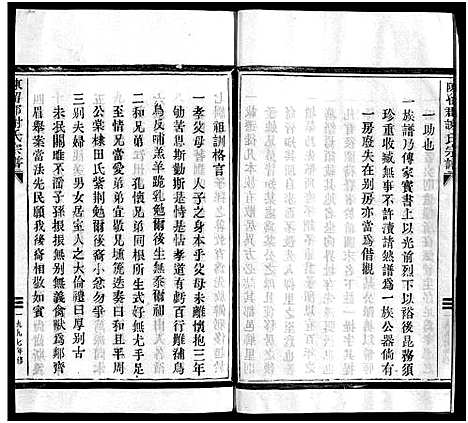 陳留郡謝氏宗譜
一助也
一族譜乃傳家寶書上以光前烈下以裕後昆務須
珍重收藏無事不許瀆然譜為一族公器倘有
一房廢失在別房亦當為借觀
祖訓格言
一孝父母 人子之身本乎父母未離懷抱三年
劬苦恩斯勤斯是恃是怙孝道有虧百行難補烏
鳥反哺羔羊跪乳勉爾後生無忝爾祖
二和兄弟 孔懷兄弟同根所生式好無尤手足
至情兄當愛弟弟宜敬兄塤篪迭奏曰和且平周
公棠棣田氏紫荊勉爾後人小忿勿爭
三別夫婦 男女居室人之大倫禮曰厚別古
十未泯關雎不淫子孫振振無別無義禽獸為鄰齊
眉舉案當法先民願我後裔相敬如賓
陳留郡謝氏宗譜
一九九七年修